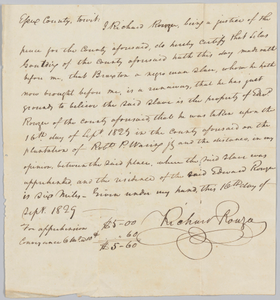 Essex County, towit: I Richard Rouze, being a justice of the
peace for the County aforesaid, do hereby certify that Silas
of the County aforesaid hath this day made oath
before me, that Braxton a negro man Slave, whom he hath
now brought before me, is a runaway, that he has just
grounds to believe the said Slave is the property of Edwd
Rouze of the County aforesaid, that he was taken upon the
16th day of Sept 1829 in the County aforesaid on the
plantation of Robt P Waring and the distance, in my
opinion, between the said place, where the said Slave was
apprehended, and the residence of the said Edward Rouze
is Six Miles. Given under my hand, this 16th day of
Sept. 1829
For apprehension $5-00
60
$5-60
Richard Rouze